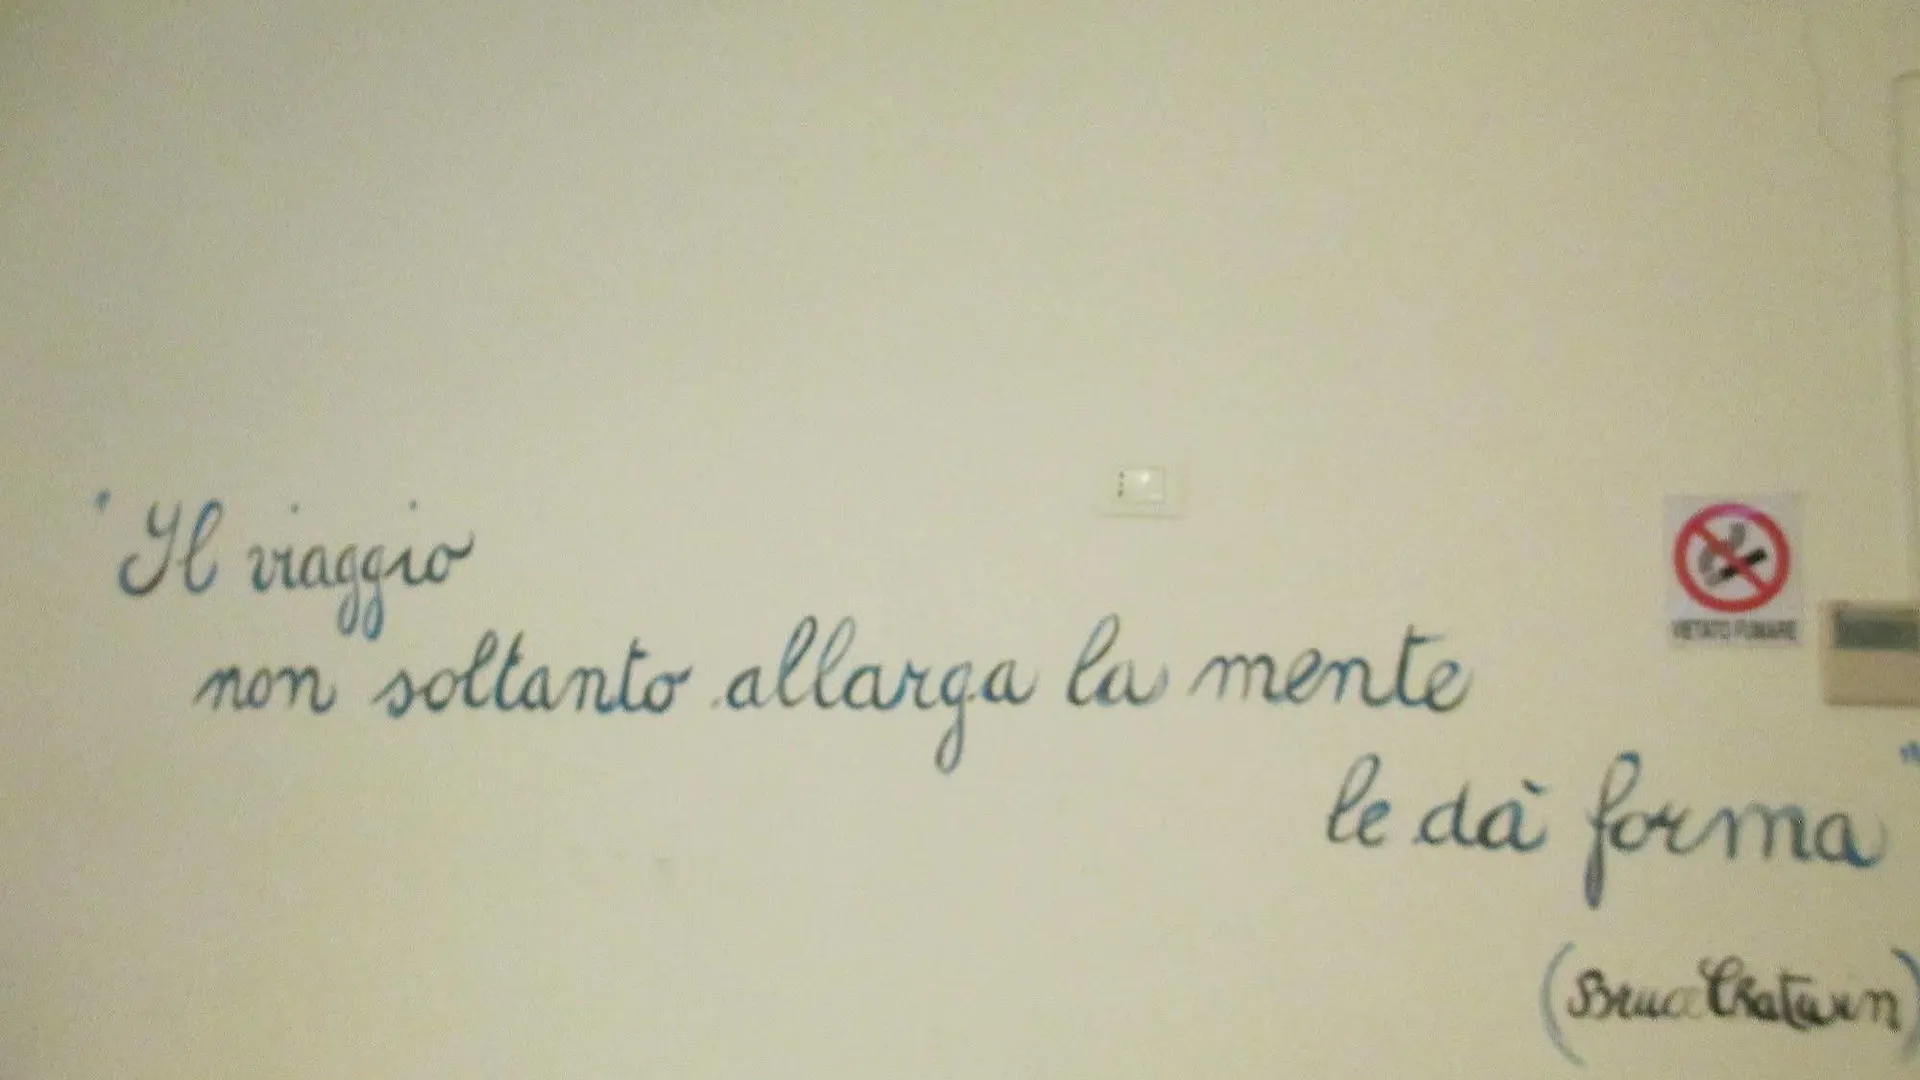 "Il viaggio
non soltanto allarga la mente
le dà forma"
(Bruce Chatwin)
VIETATO FUMARE